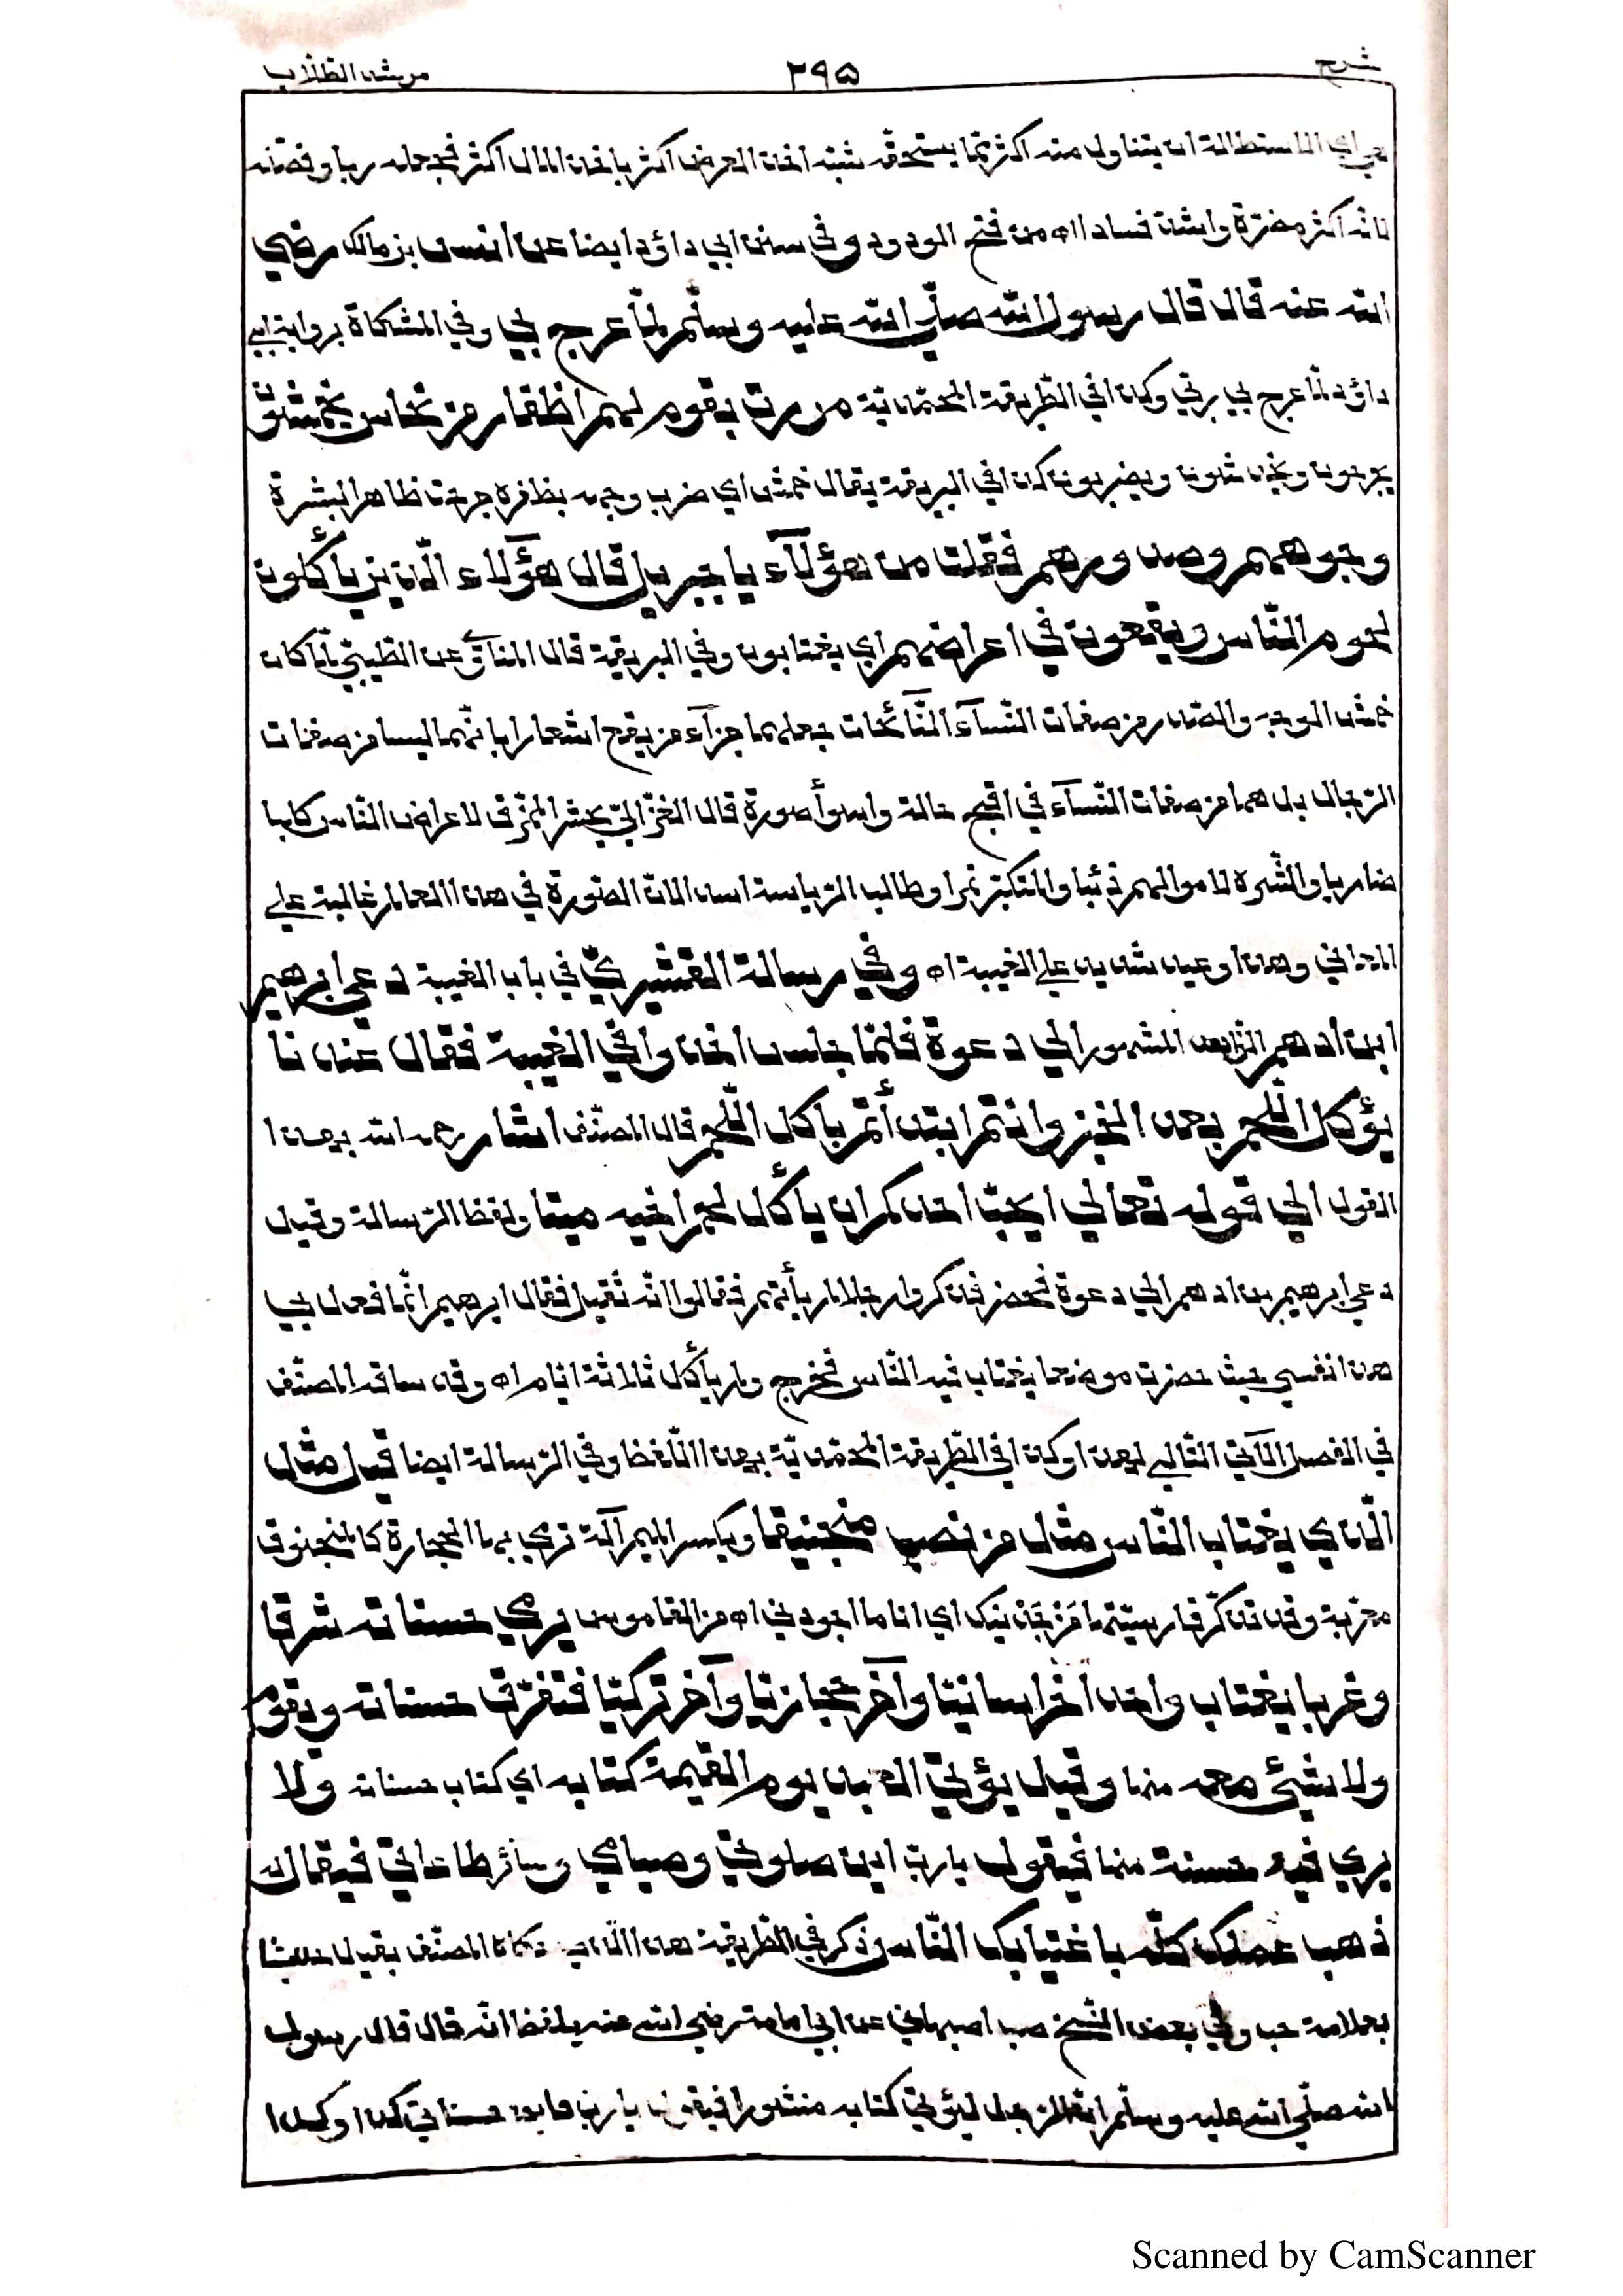 شرح ٢٩٥ مرشد الطلاب
هي اي الاستطالة ان يتناول منه اكثر مما يستحقه شبه اخذ العرض اكثر باخذ المال اكثر فجعله ربا وفضّله
لانه اكثر مضرّة واشدّ فسادا اه من فتح الودود وفي سنن ابي داؤد ايضا عن انس بن مالك رضي
الله عنه قال قال رسول الله صلّي الله عليه وسلّم لمّا عرج بي وفي المشكاة برواية ابي
داؤد لمّا عرج بي ربّي وكذا في الطّريقة المحمّديّة مررت بقوم لهم اظفار من نحاس يخمشون
يجرحون ويخدشون ويضربون كذا في البريقة يقال خمش اي ضرب وجهه بظفره جرحت ظاهر البشرة
وجوههم وصدورهم فقلت من هؤلآء يا جبريل قال هؤلاء الّذين يأكلون
لحوم النّاس ويقعون في اعراضهم اي يغتابون وفي البريقة قال المناويّ عن الطّيبيّ لمّا كان
خمش الوجه والصدر من صفات النّسآء النّآئحات جعلهما جزآء من يقع اشعارا بانّهما ليسا من صفات
الرّجال بل هما من صفات النّسآء في اقبح حالة واسوأ صورة قال الغزّاليّ يحشر الممزّق لاعراض النّاس كلبا
ضاريا والشّره لاموالهم ذئبا والمتكبّر نمرا وطالب الرّياسة اسدا لانّ الصّورة في هذا العالم غالبة علي
المعاني وهذا وعيد شديد علي الغيبة اه وفي رسالة القشيريّ في باب الغيبة دعي ابرهيم
ابن ادهم الزّاهد المشهور الي دعوة فلمّا جلس اخذوا في الغيبة فقال عندنا
يؤكل اللّحم بعد الخبز وانتم ابتدأتم باكل اللّحم قال المصنّف اشار رحمه الله بهذا
القول الي قوله تعالي ايحبّ احدكم ان يأكل لحم اخيه ميتا ولفظ الرّسالة وقيل
دعي ابرهيم بن ادهم الي دعوة فحضر فذكروا رجلا لم يأتهم فقالوا انّه ثقيل فقال ابرهيم انّما فعل بي
هذا نفسي حيث حضرت موضعا يغتاب فيه النّاس فخرج ولم يأكل ثلاثة ايّام اه وقد ساقه المصنّف
في الفصل الآتي التّالي لهذا وكذا في الطّريقة المحمّديّة بهذا اللّفظ وفي الرّسالة ايضا قيل مثل
الّذي يغتاب النّاس مثل من نصب منجنيقا ويكسر الميم آلة ترمي بها الحجارة كالمنجنوق
معرّبة وقد تذكّر فارسيّتها من چه نيك اي انا ما اجودني اه من القاموس يرمي حسناته شرقا
وغربا يغتاب واحدا خراسانيّا وآخر حجازيّا وآخر تركيّا فتفرّق حسناته ويقوم
ولا شيئ معه منها وقيل يؤتي العبد يوم القيمة كتابه اي كتاب حسناته ولا
يري فيه حسنة منها فيقول يا ربّ اين صلوتي وصيامي وسائر طاعاتي فيقال له
ذهب عملك كلّه باغتيابك النّاس وذكر في الطّريقة هذا الّذي حكاه المصنّف بقيل حديثا
بعلامة حب وفي بعض النّسخ صب اصبهاني عن ابي امامة رضي الله عنه بلفظ انّه قال قال رسول
الله صلّي الله عليه وسلّم انّ الرّجل ليؤتي كتابه منشورا فيقول يا ربّ فاين حسناتي كذا وكذا
Scanned by CamScanner